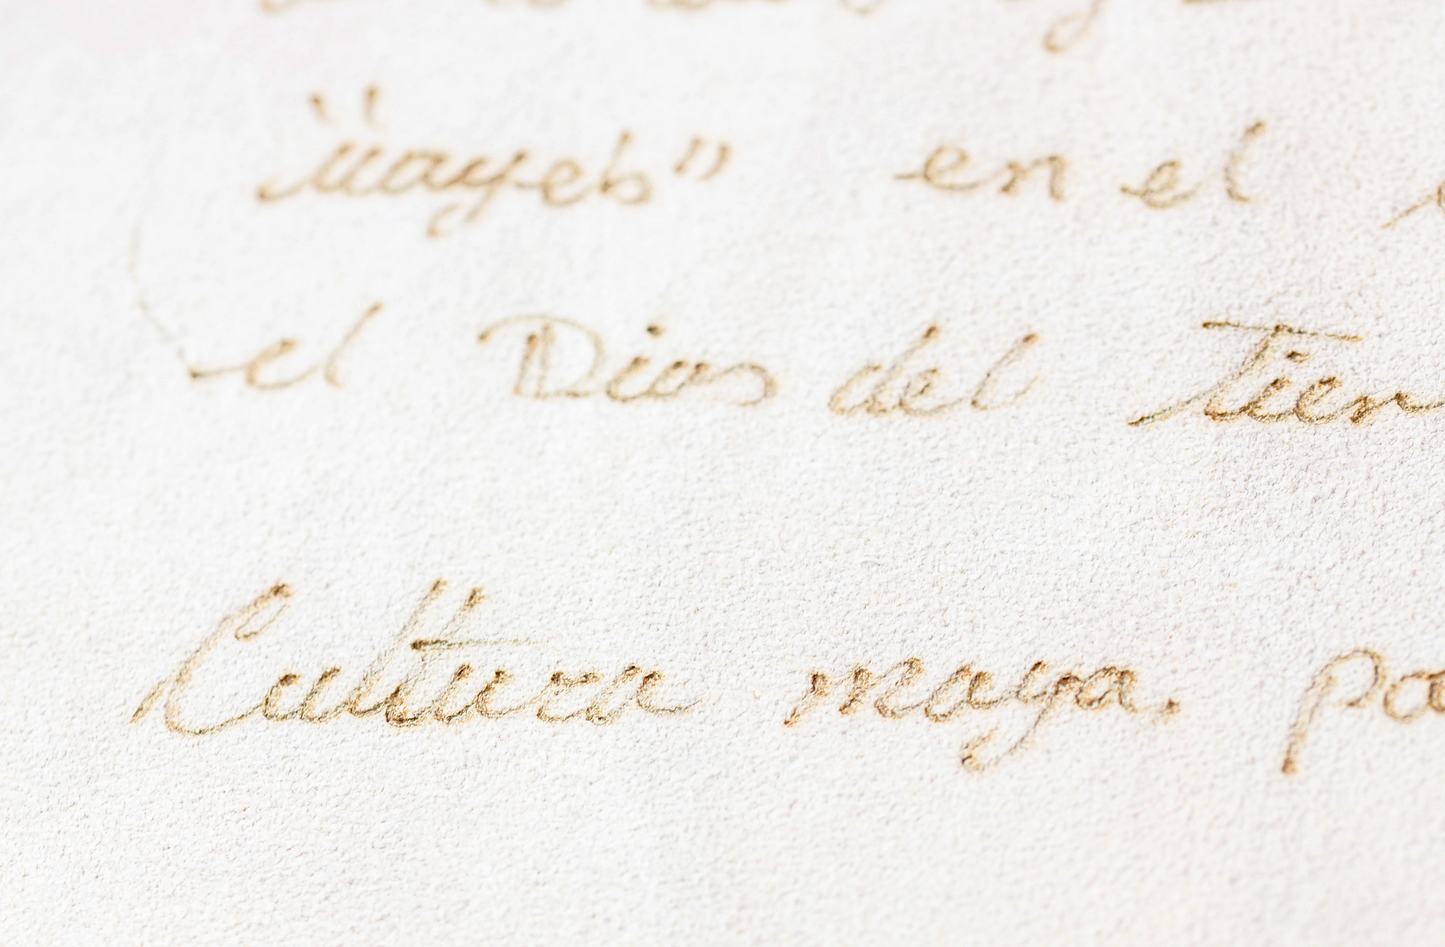 "Uayeb" en el
el Dios del Tiem
Cultura maya. pa